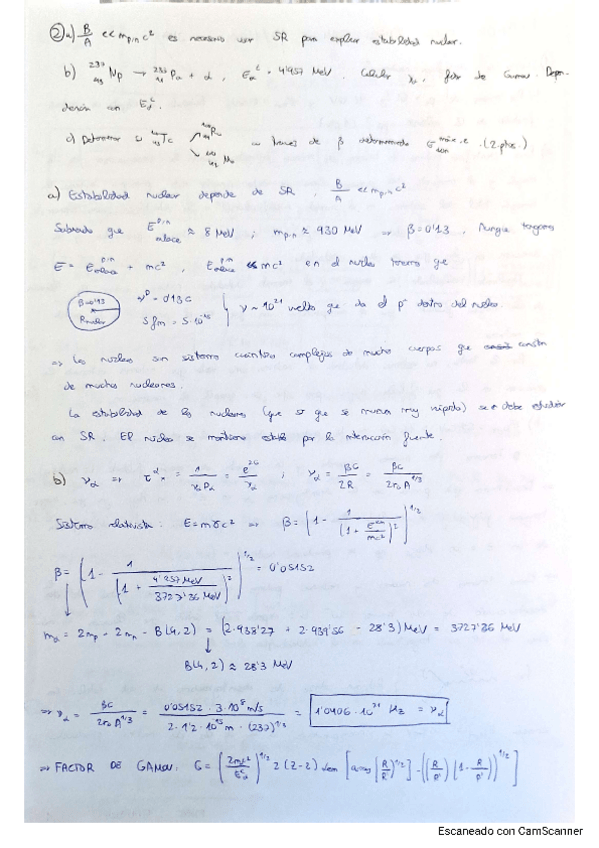 ② a) B/A << m_{p,n} c² es necesario usar SR para explicar estabilidad nuclear.
b) ²³⁷₉₃Np → ²³³₉₁Pa + α , E_α^c = 4'957 MeV. Calcular γ_α, factor de Gamow. Depen-
dencia con E_α^c.
a) Estabilidad nuclear depende de SR B/A << m_{p,n} c²
Sabiendo que E_{enlace}^{p,n} ≈ 8 MeV ; m_{p,n} ≈ 930 MeV ⇒ β = 0'13. Aunque tengamos
E = E_{enlace}^{p,n} + mc², E_{enlace}^{p,n} << mc² en el núcleo tenemos que
β=0'13 R_{nuclear} v^p = 0'13 c 5 fm = 5·10⁻¹⁵ } γ ~ 10²¹ vueltas que da el p⁺ dentro del núcleo.
⇒ Los núcleos son sistemas cuánticos complejos de muchos cuerpos que constan
de muchos nucleones.
La estabilidad de los nucleones (que si que se mueven muy rápido) se debe estudiar
con SR. El núcleo se mantiene estable por la interacción fuerte.
b) γ_α ⇒ τ_α = 1/(γ_α P_α) = e^{2G}/γ_α ; γ_α = βc/2R = βc/(2r₀A^{1/3})
Sistema relativista: E = mγc² ⇒ β = [1 - 1/(1 + E^{cin}/mc²)²]^{1/2}
β = [1 - 1/(1 + 4'957 MeV/3727'36 MeV)²]^{1/2} = 0'05152
m_α = 2m_p - 2m_n - B(4,2) = (2·938'27 + 2·939'56 - 28'3) MeV = 3727'36 MeV
B(4,2) ≈ 28'3 MeV
⇒ γ_α = βc/(2r₀A^{1/3}) = 0'05152 · 3·10⁸ m/s / (2·1'2·10⁻¹⁵ m · (237)^{1/3}) = 1'0406·10²¹ Hz = γ_α
Escaneado con CamScanner